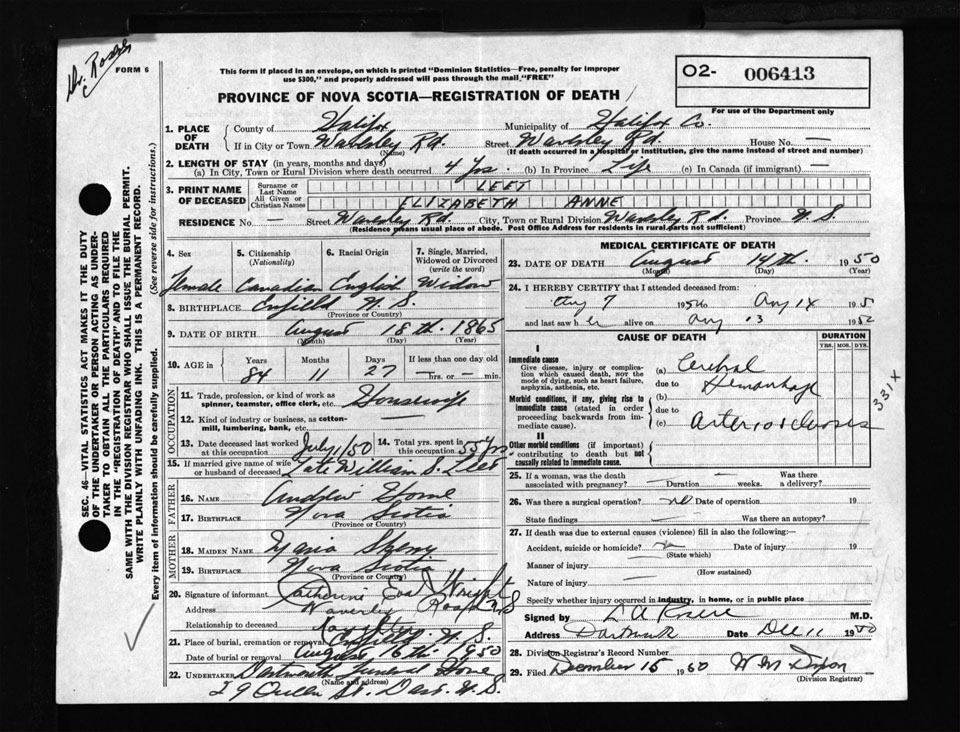 Dr. Rosere
FORM 6
This form if placed in an envelope, on which is printed "Dominion Statistics—Free, penalty for improper
use $300," and properly addressed will pass through the mail "FREE"
PROVINCE OF NOVA SCOTIA—REGISTRATION OF DEATH
O2- 006413
For use of the Department only
1. PLACE OF DEATH
County of Halifax Municipality of Halifax Co.
If in City or Town Waverley Rd. Street Waverley Rd. House No. —
(Name) (If death occurred in a hospital or institution, give the name instead of street and number)
2. LENGTH OF STAY (in years, months and days)
(a) In City, Town or Rural Division where death occurred 4 yrs. (b) In Province Life (c) In Canada (if immigrant) —
3. PRINT NAME OF DECEASED
Surname or Last Name LEET
All Given or Christian Names ELIZABETH ANNE
RESIDENCE No. — Street Waverley Rd. City, Town or Rural Division Waverley Rd. Province N.S.
(Residence means usual place of abode. Post Office Address for residents in rural parts not sufficient)
4. Sex 5. Citizenship (Nationality) 6. Racial Origin 7. Single, Married, Widowed or Divorced (write the word)
Female Canadian English Widow
8. BIRTHPLACE Enfield N.S.
(Province or Country)
9. DATE OF BIRTH August 18th. 1865
(Month) (Day) (Year)
10. AGE in Years Months Days If less than one day old
84 11 27 — hrs. or — min.
OCCUPATION
11. Trade, profession, or kind of work as spinner, teamster, office clerk, etc. Housewife
12. Kind of industry or business, as cotton-mill, lumbering, bank, etc.
13. Date deceased last worked at this occupation July/50 14. Total yrs. spent in this occupation 55 yrs
15. If married give name of wife or husband of deceased Late William S. Leet
FATHER
16. NAME Andrew Horne
17. BIRTHPLACE Nova Scotia
(Province or Country)
MOTHER
18. MAIDEN NAME Maria
19. BIRTHPLACE Nova Scotia
(Province or Country)
20. Signature of informant Catherine Eva Wright
Address Waverley Road N.S
Relationship to deceased Daughter
21. Place of burial, cremation or removal Enfield. N.S.
Date of burial or removal August 16th 1950
22. UNDERTAKER Dartmouth Funeral Home
(Name and address)
29 Queen St. Dart. N.S.
MEDICAL CERTIFICATE OF DEATH
23. DATE OF DEATH August 14th. 1950
(Month) (Day) (Year)
24. I HEREBY CERTIFY that I attended deceased from:
Aug 7 1950 to Aug 14 195
and last saw her alive on Aug 13 1950
CAUSE OF DEATH DURATION
YRS. MOS. DYS.
I
Immediate cause
Give disease, injury or complication which caused death, not the mode of dying, such as heart failure, asphyxia, asthenia, etc.
(a) Cerebral
due to Hemorrhage
Morbid conditions, if any, giving rise to immediate cause (stated in order proceeding backwards from immediate cause).
(b)
due to
(c) Arteriosclerosis
331X
II
Other morbid conditions (if important) contributing to death but not causally related to immediate cause.
25. If a woman, was the death associated with pregnancy? — Duration — weeks. Was there a delivery? —
26. Was there a surgical operation? no Date of operation 19
State findings — Was there an autopsy?
27. If death was due to external causes (violence) fill in also the following:—
Accident, suicide or homicide? no Date of injury 19
(State which)
Manner of injury
(How sustained)
Nature of injury —
Specify whether injury occurred in industry, in home, or in public place
Signed by L A Rosere M.D.
Address Dartmouth Date Dec 11 1950
28. Division Registrar's Record Number
29. Filed December 15 1950 W M Dixon
(Division Registrar)
SEC. 46—VITAL STATISTICS ACT MAKES IT THE DUTY
OF THE UNDERTAKER OR PERSON ACTING AS UNDER-
TAKER TO OBTAIN ALL THE PARTICULARS REQUIRED
IN THE "REGISTRATION OF DEATH" AND TO FILE THE
SAME WITH THE DIVISION REGISTRAR WHO SHALL ISSUE THE BURIAL PERMIT.
WRITE PLAINLY WITH UNFADING INK. THIS IS A PERMANENT RECORD.
Every item of information should be carefully supplied. (See reverse side for instructions.)